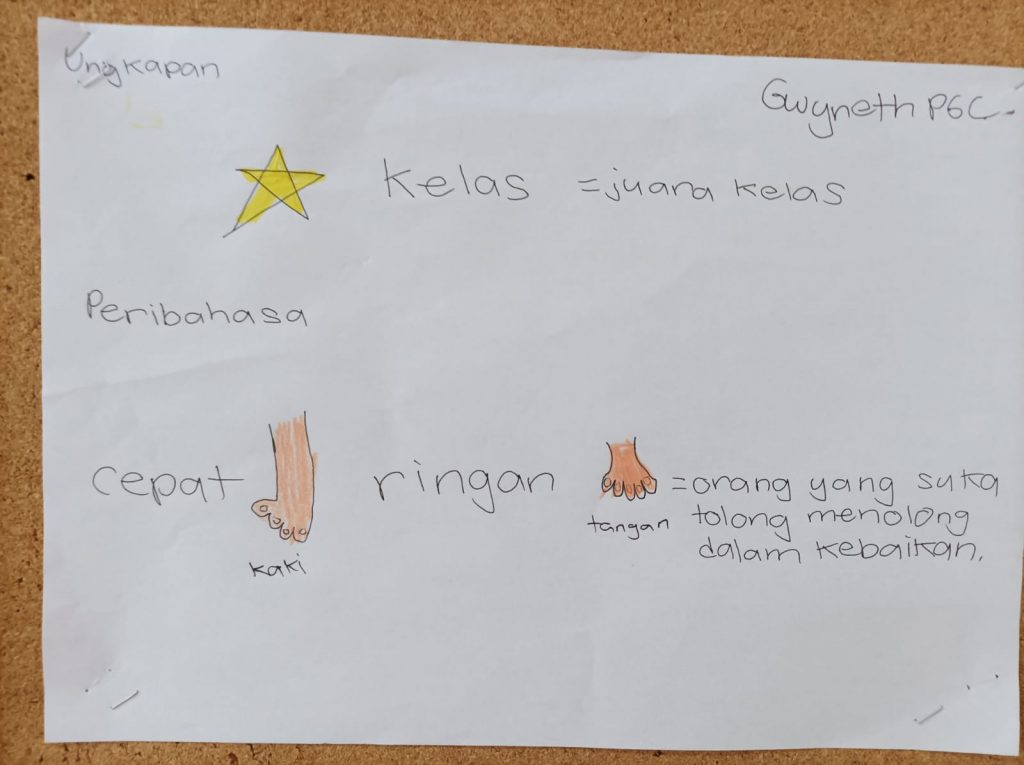 Ungkapan
Gwyneth P6C.
kelas = juara kelas
Peribahasa
cepat ringan = orang yang suka
tangan tolong menolong
dalam kebaikan.
kaki